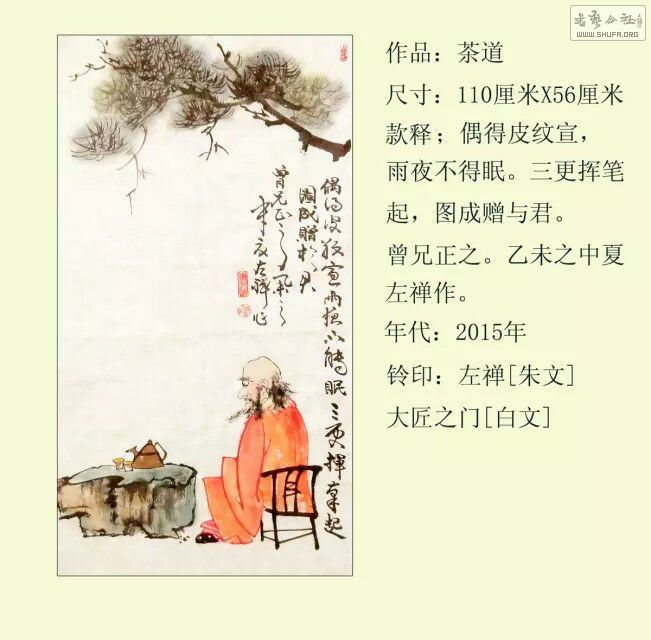 WWW.SHUFA.ORG
作品：茶道
尺寸：110厘米X56厘米
款释；偶得皮纹宣，
雨夜不得眠。三更挥笔
起，图成赠与君。
曾兄正之。乙未之中夏
左禅作。
年代：2015年
铃印：左禅[朱文]
大匠之门[白文]
偶得皮紋宣雨夜不能眠三更揮笔起
圖成贈於君
曾兄正之